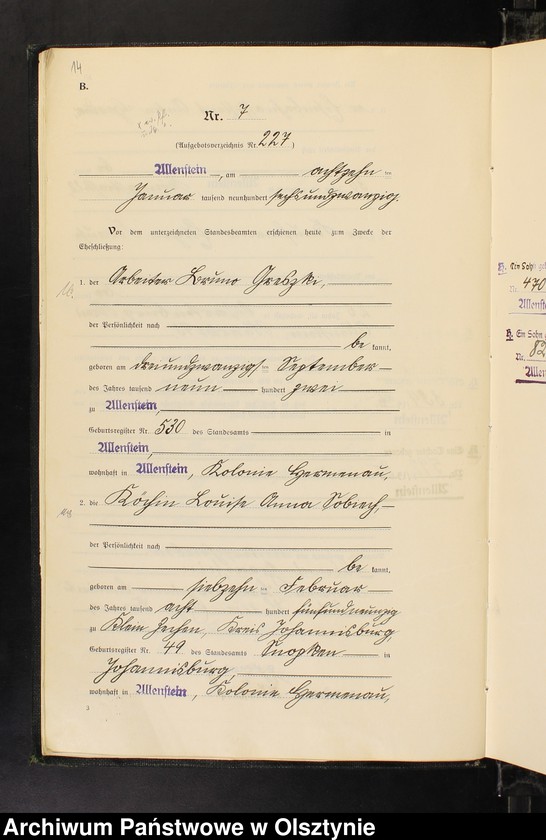 14
B.
Nr. 7
(Aufgebotsverzeichnis Nr. 227)
Allenstein, am achtzehn ten
Januar tausend neunhundert sechsundzwanzig.
Vor dem unterzeichneten Standesbeamten erschienen heute zum Zwecke der
Eheschließung:
1. der Arbeiter Bruno Greszki,
der Persönlichkeit nach
be kannt,
geboren am dreiundzwanzigsten September
des Jahres tausend neun hundert zwei
zu Allenstein,
Geburtsregister Nr. 530 des Standesamts in
Allenstein,
wohnhaft in Allenstein, Kolonie Hermenau,
2. die Köchin Louise Anna Sobiech,
der Persönlichkeit nach
be kannt,
geboren am siebzehn ten Februar
des Jahres tausend acht hundert fünfundneunzig
zu Klein Zechen, Kreis Johannisburg
Geburtsregister Nr. 49 des Standesamts Snopken in
Johannisburg,
wohnhaft in Allenstein, Kolonie Hermenau,
3
H. Ein Sohn
Nr. 470
Allenst
H. Ein Sohn
Nr. 82
Allen
Archiwum Państwowe w Olsztynie